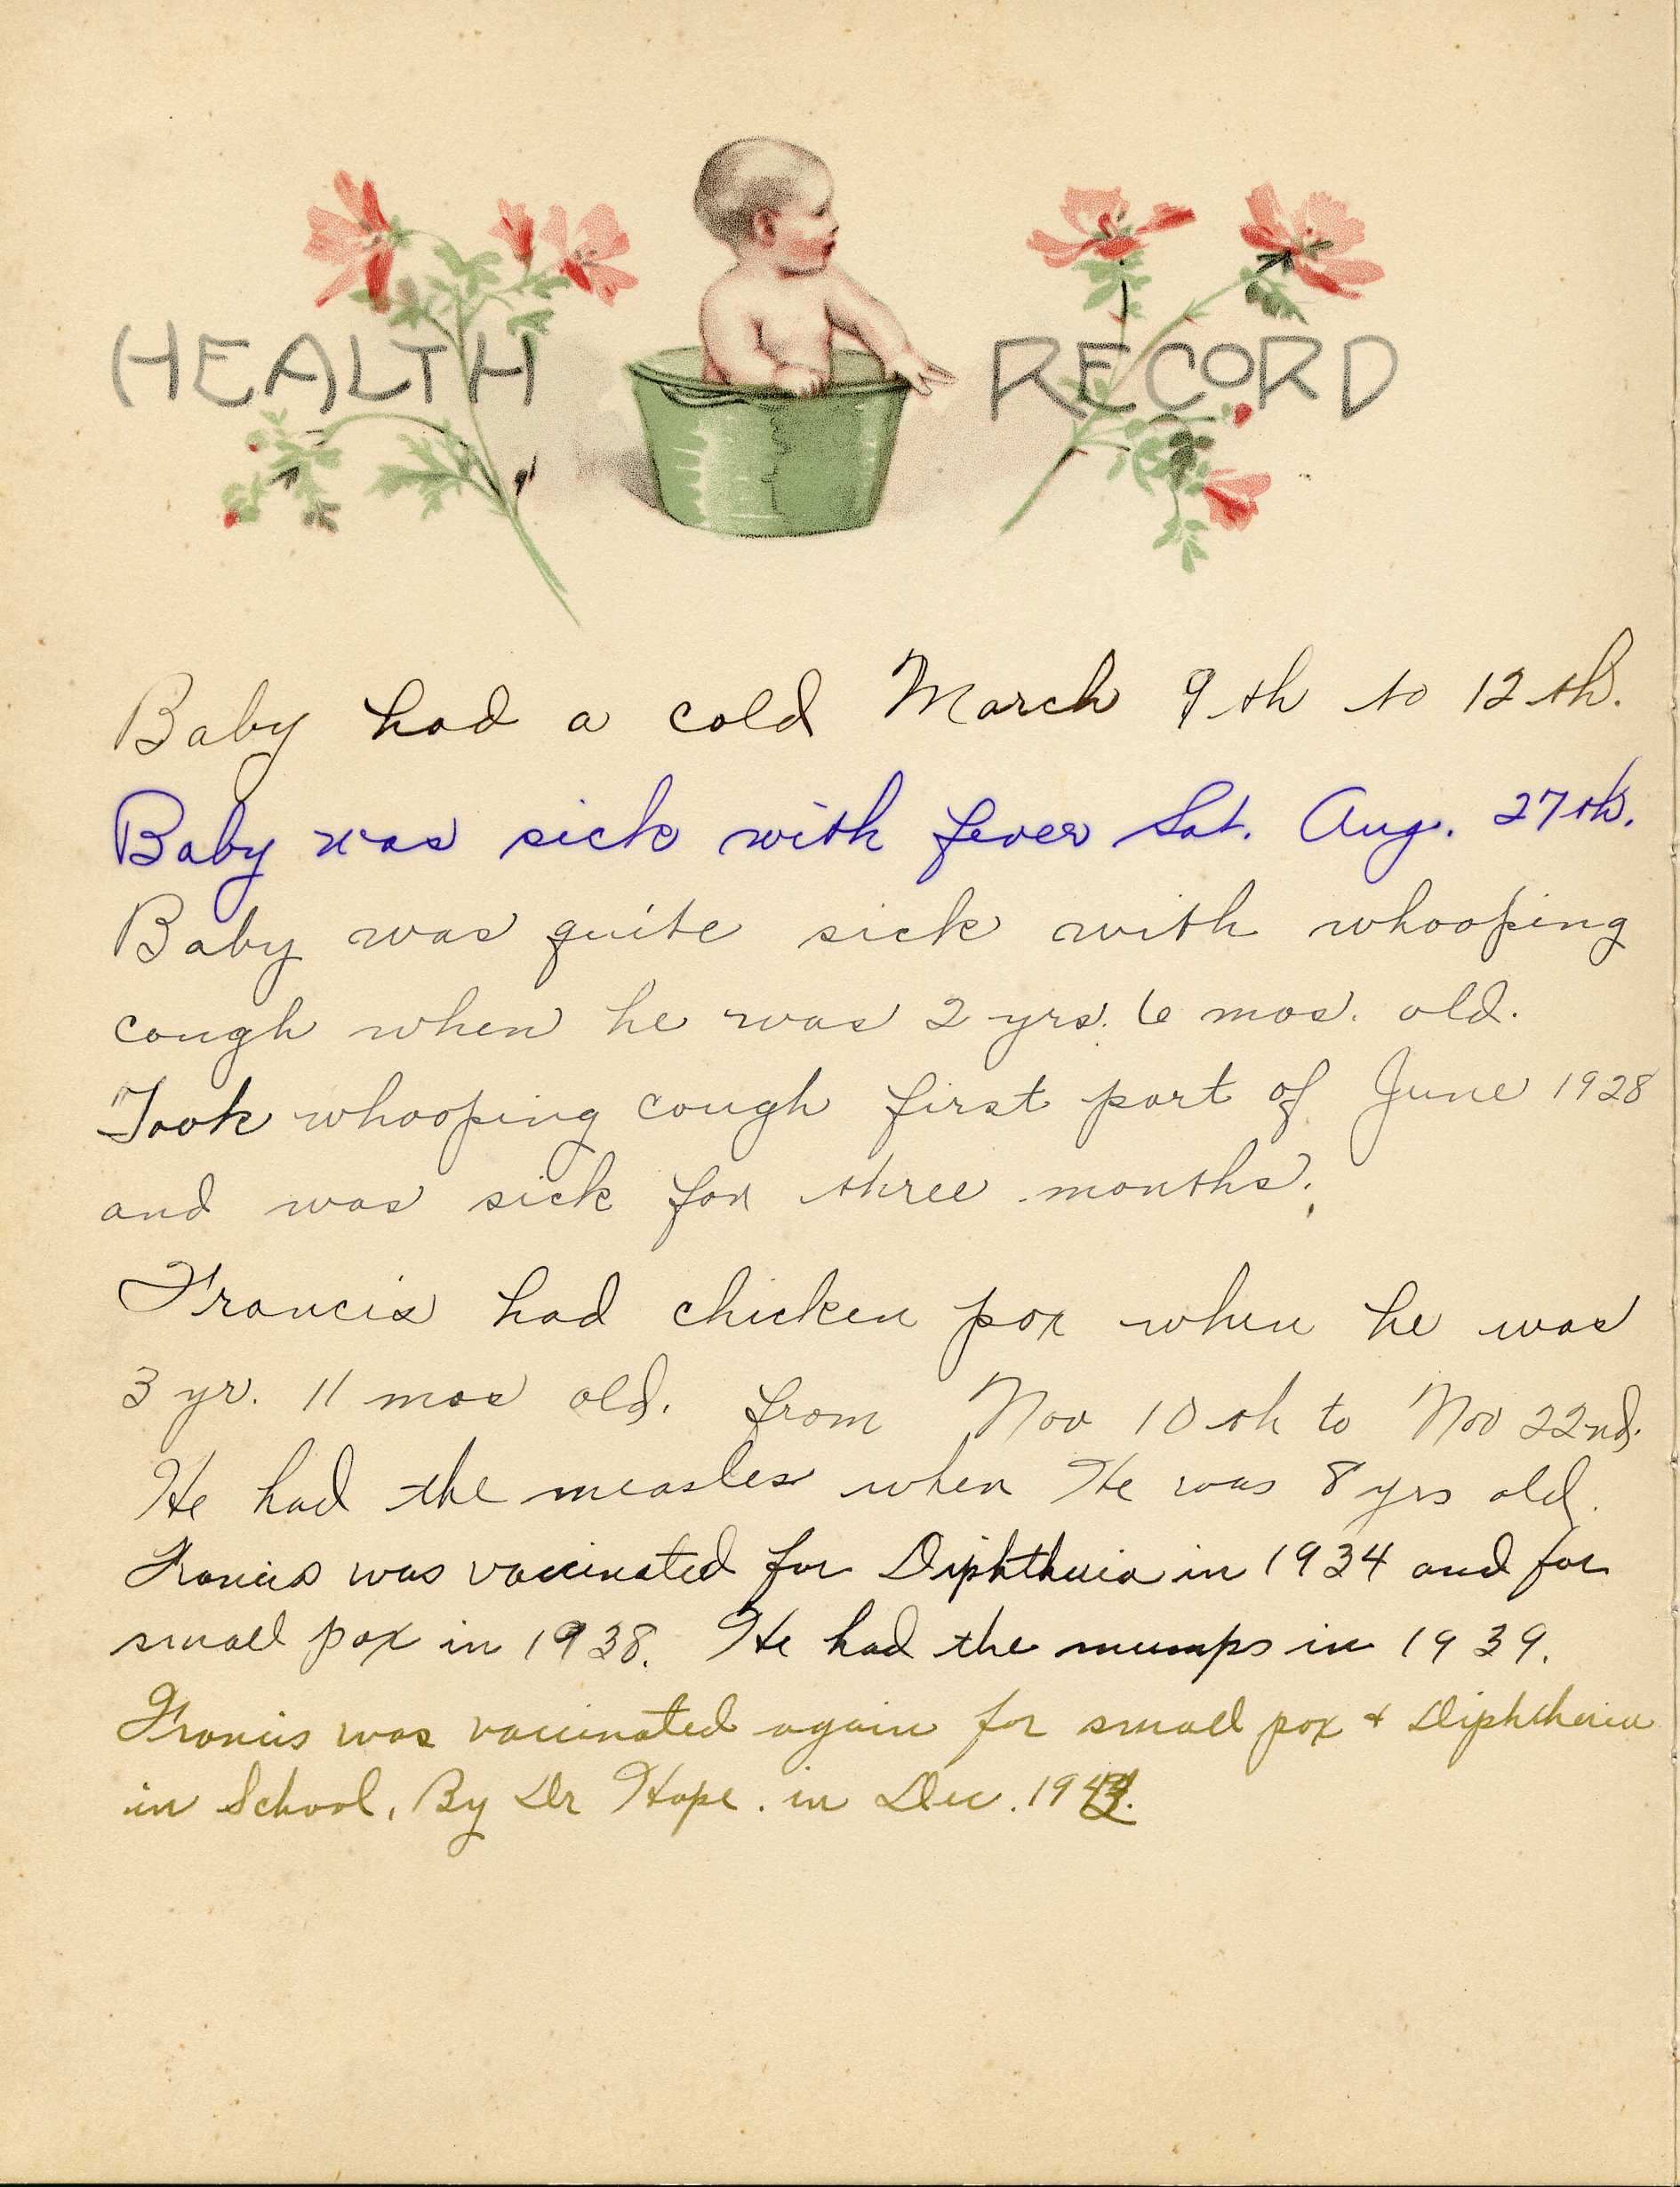 HEALTH RECORD
Baby had a cold March 9th to 12th.
Baby was sick with fever Sat. Aug. 27th.
Baby was quite sick with whooping
cough when he was 2 yrs. 6 mos. old.
Took whooping cough first part of June 1928
and was sick for three months.
Francis had chicken pox when he was
3 yr. 11 mos old. from Nov 10th to Nov 22nd.
He had the measles when He was 8 yrs old.
Francis was vaccinated for Diphtheria in 1934 and for
small pox in 1938. He had the mumps in 1939.
Francis was vaccinated again for small pox + Diphtheria
in School, By Dr Hope. in Dec.